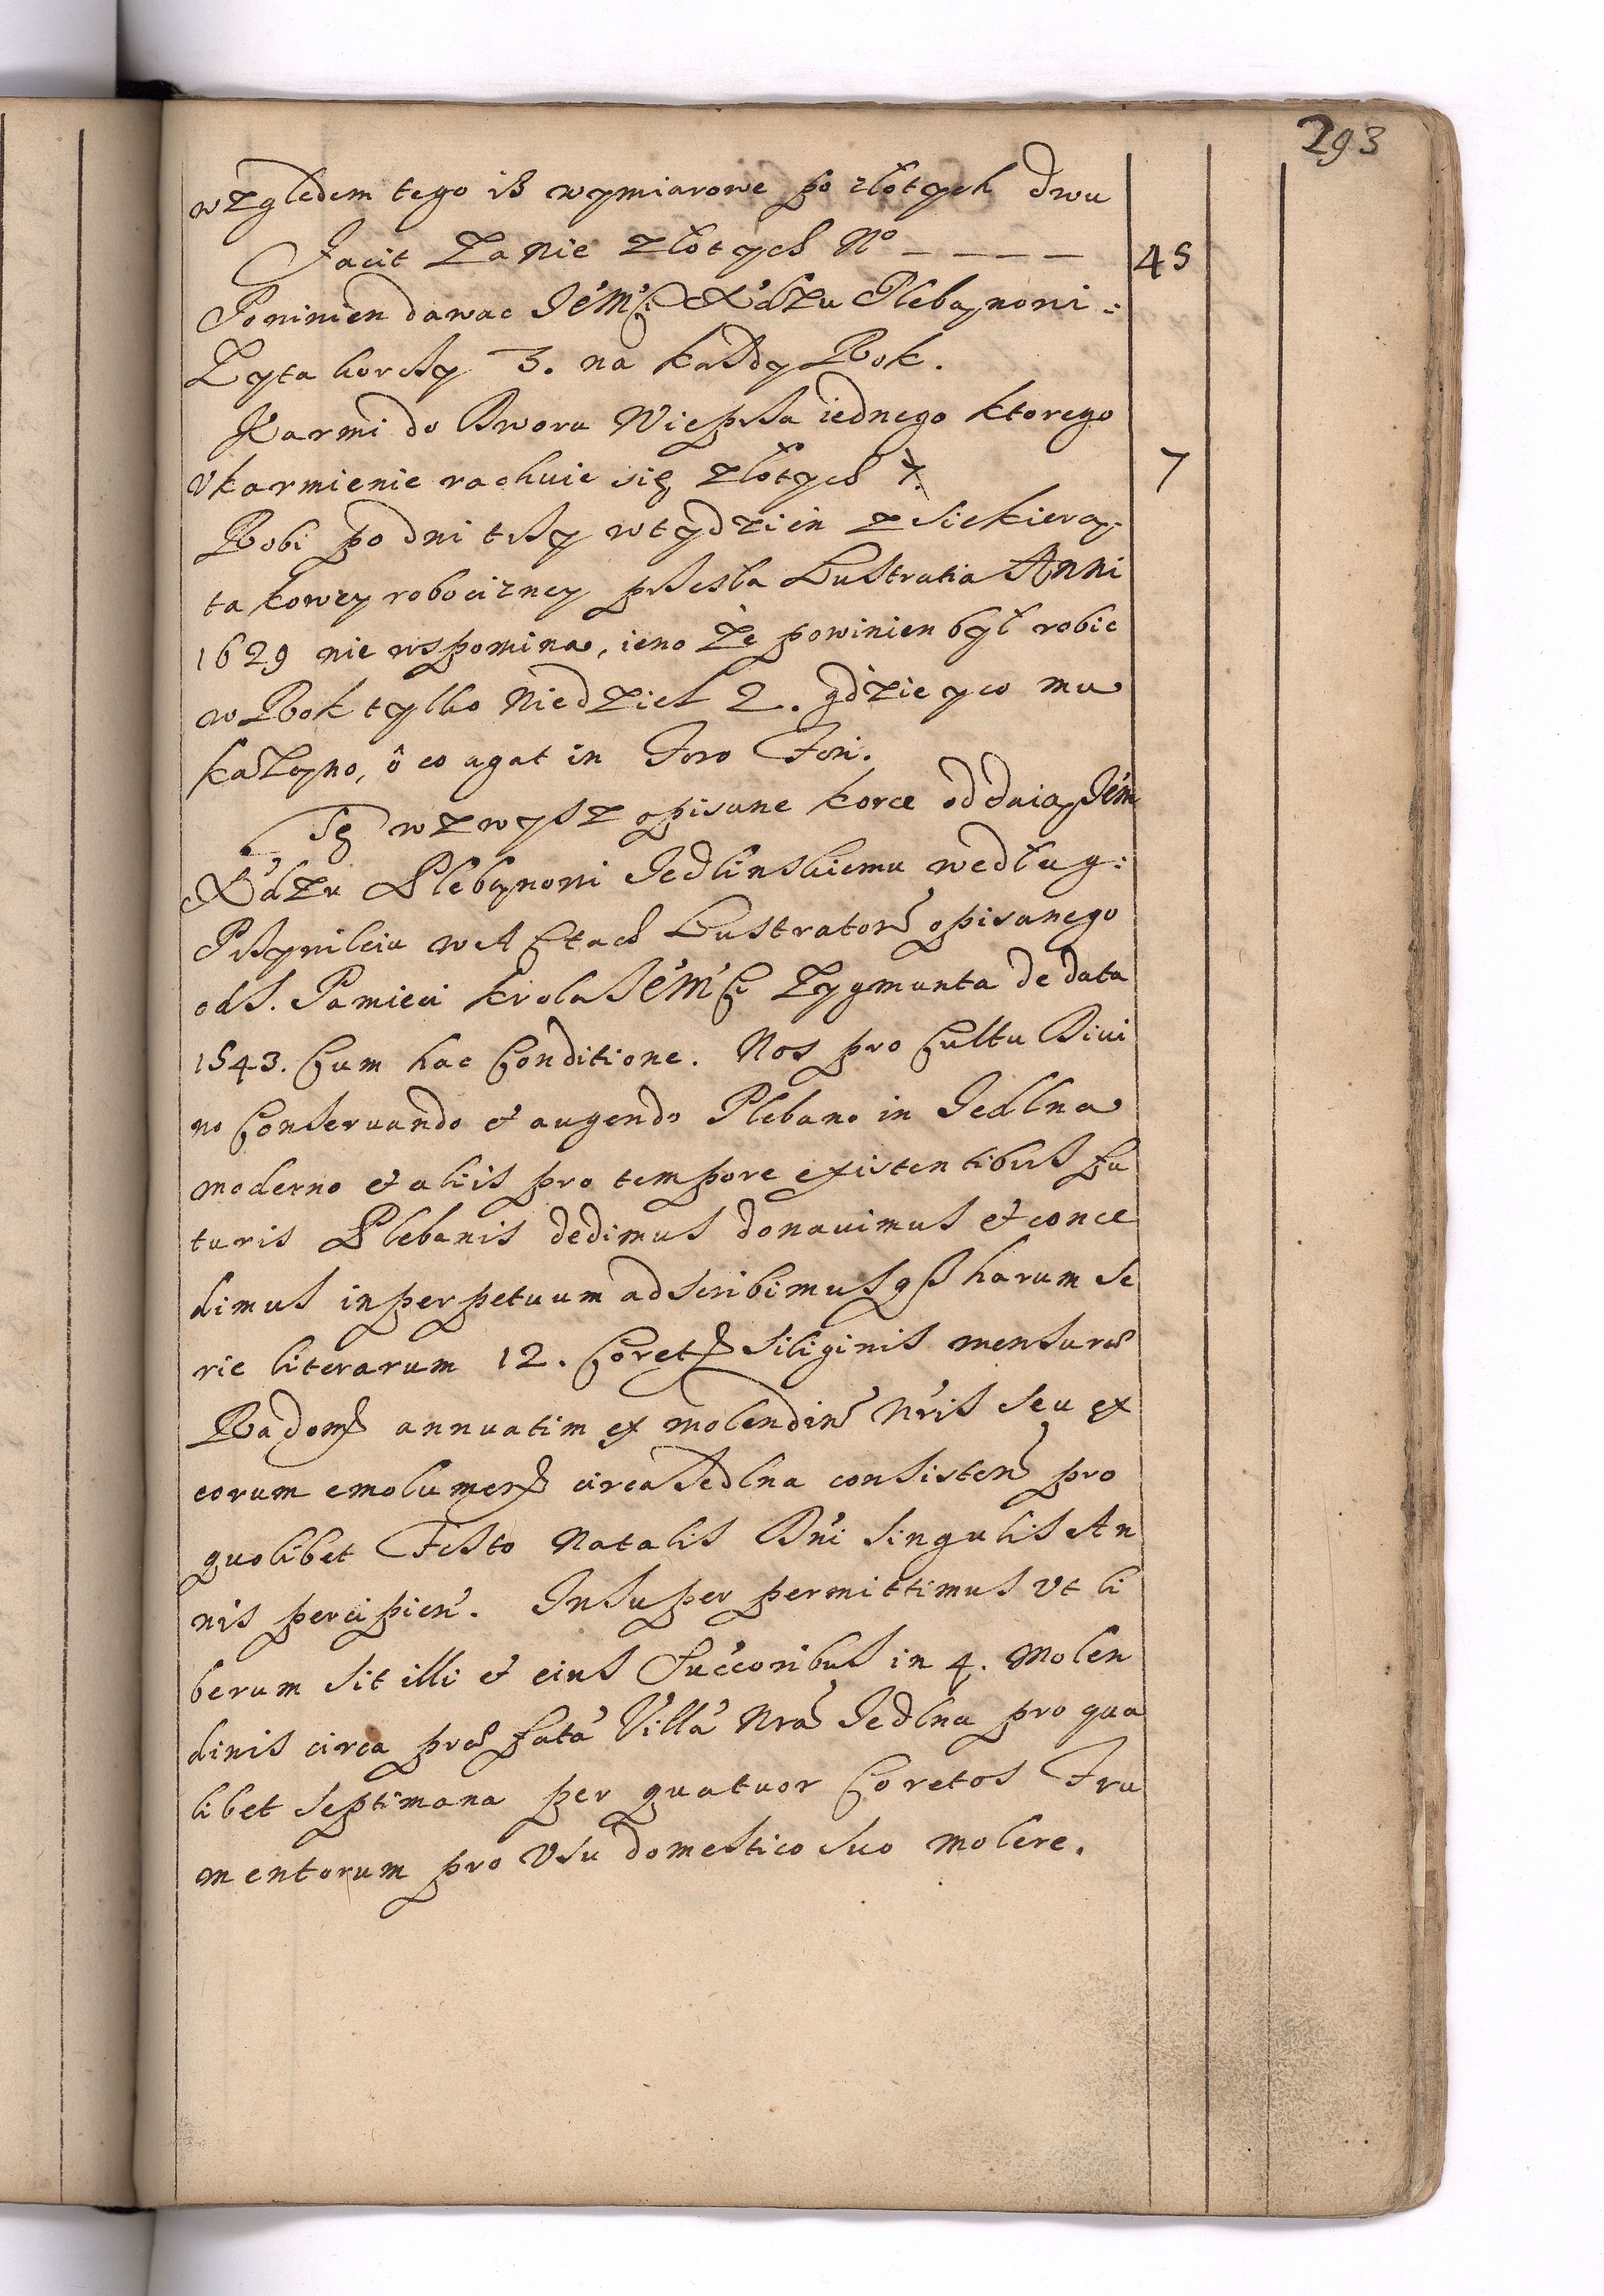 293
względem tego iß wymiarowe po złotych dwu
Facit Za nie złotych No – – – – 45
Powinien dawac JeMci Xdzu Plebanowi:
Zyta korczy 3. na każdy Rok.
Karmi do Dwora Wieprza iednego ktorego
vkarmienie rachuie się złotych 7. 7
Robi po dni trzy w tydzien z siekierą
takowey robocizney przeszła Lustratia Anni
1629 nie wspomina, ieno że powinien był robic
w Rok tylko Niedziel 2. gdzie y co mu
kazano, o co agat in Foro Fori.
Tę wzwysz opisane korce oddaią Jem
Xdzu Plebanowi Jedlinskiemu według:
Przywileiu w Actach Lustrator opisanego
od S. Pamieci Krola JeMci Zygmunta de data
1543. Cum hac Conditione. Nos pro Cultu Diui
no Conseruando et augendo Plebano in Jedlna
moderno et aliis pro tempore existentibus fu
turis Plebanis dedimus donauimus et conce
dimus in perpetuum adscribimusqß harum se
rie literarum 12. Coret siliginis mensurae
Radom annuatim ex molendin nris seu ex
eorum emolumen circa Jedlna consisten pro
quolibet Festo Natalis Dni singulis An
nis percipien. Insuper permittimus vt li
berum sit illi et eius Succoribus in 4. Molen
dinis circa praefata Villa Nra Jedlna pro qua
libet septimana per quatuor Coretos Fru
mentorum pro vsu domestico suo molere.